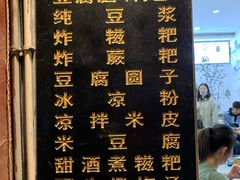 纯豆浆
炸糍粑
炸蕨粑
豆腐圆子
冰凉粉
凉拌米皮
米豆腐
甜酒煮糍粑